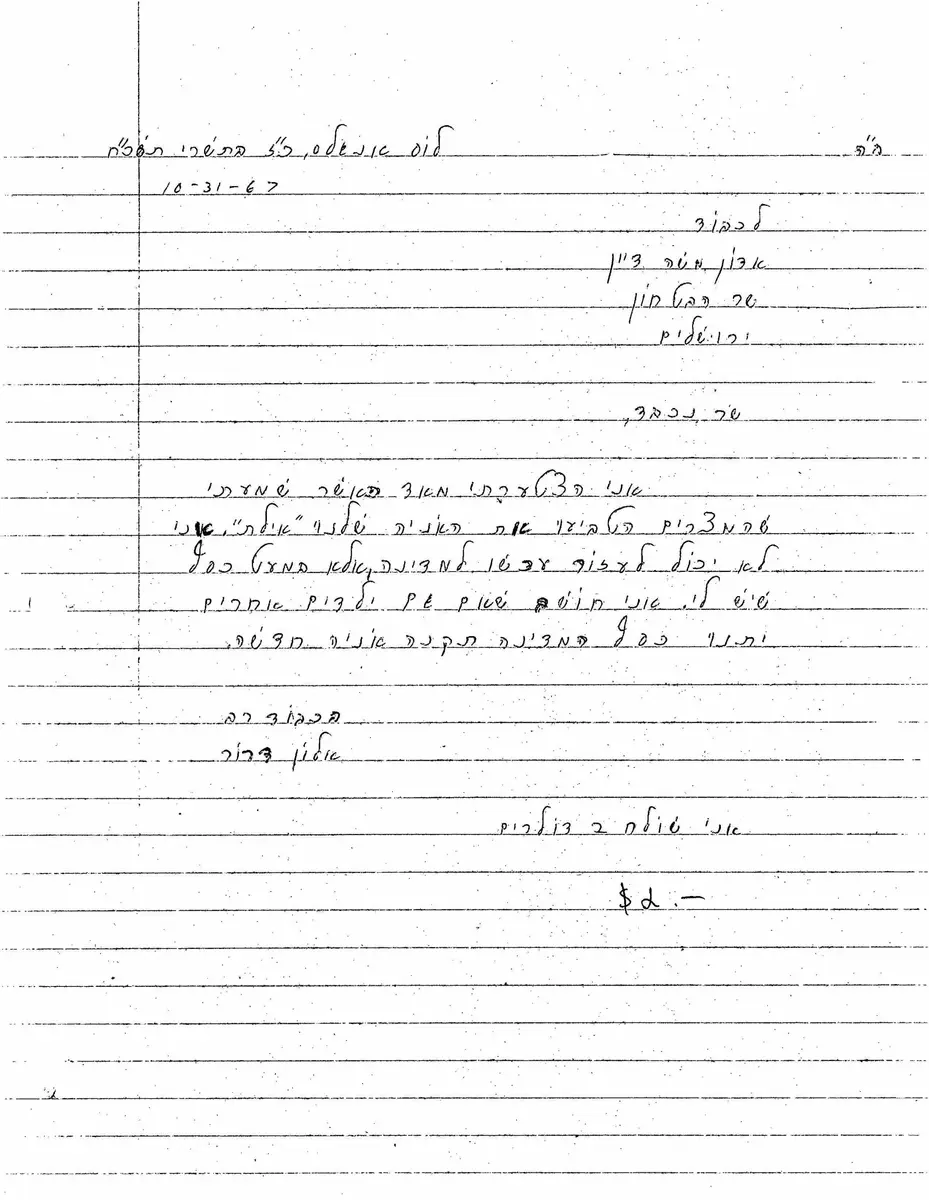 ב"ה
לוס אנג'לס, כ"ז בתשרי תשכ"ח
10-31-67
לכבוד
אדון משה דיין
שר הבטחון
ירושלים
שר נכבד,
אני הצטערתי מאד כאשר שמעתי
שהמצרים הטביעו את האניה שלנו "אילת". אני
לא יכול לעזור עכשו למדינה, אלא במעט כסף
שיש לי. אני חושב שאם גם ילדים אחרים
יתנו כסף המדינה תקנה אוניה חדשה.
בכבוד רב
אלון דרור
אני שולח ב דולרים
$2.—